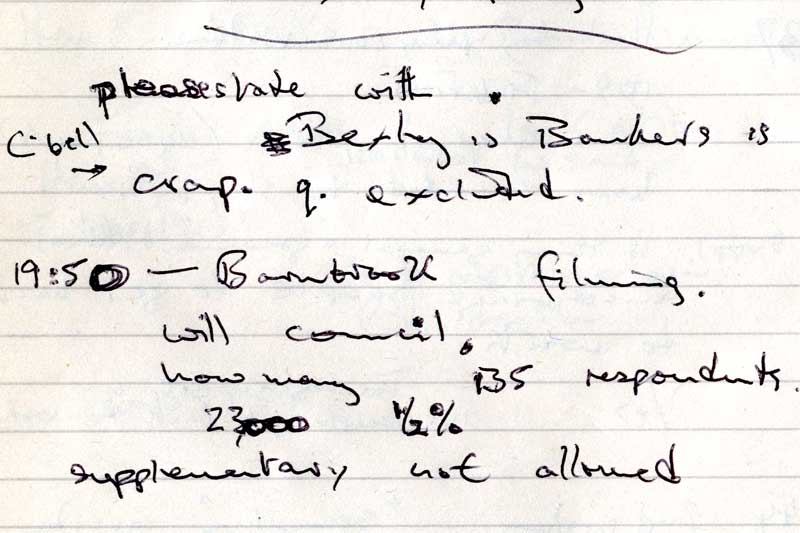 please state with .
C. bell Bexley is Bonkers is
→ crap. q. excluded.
19:50 — Barnbrook filming.
will council.
how many 135 respondents.
23,000 ½%
supplementary not allowed